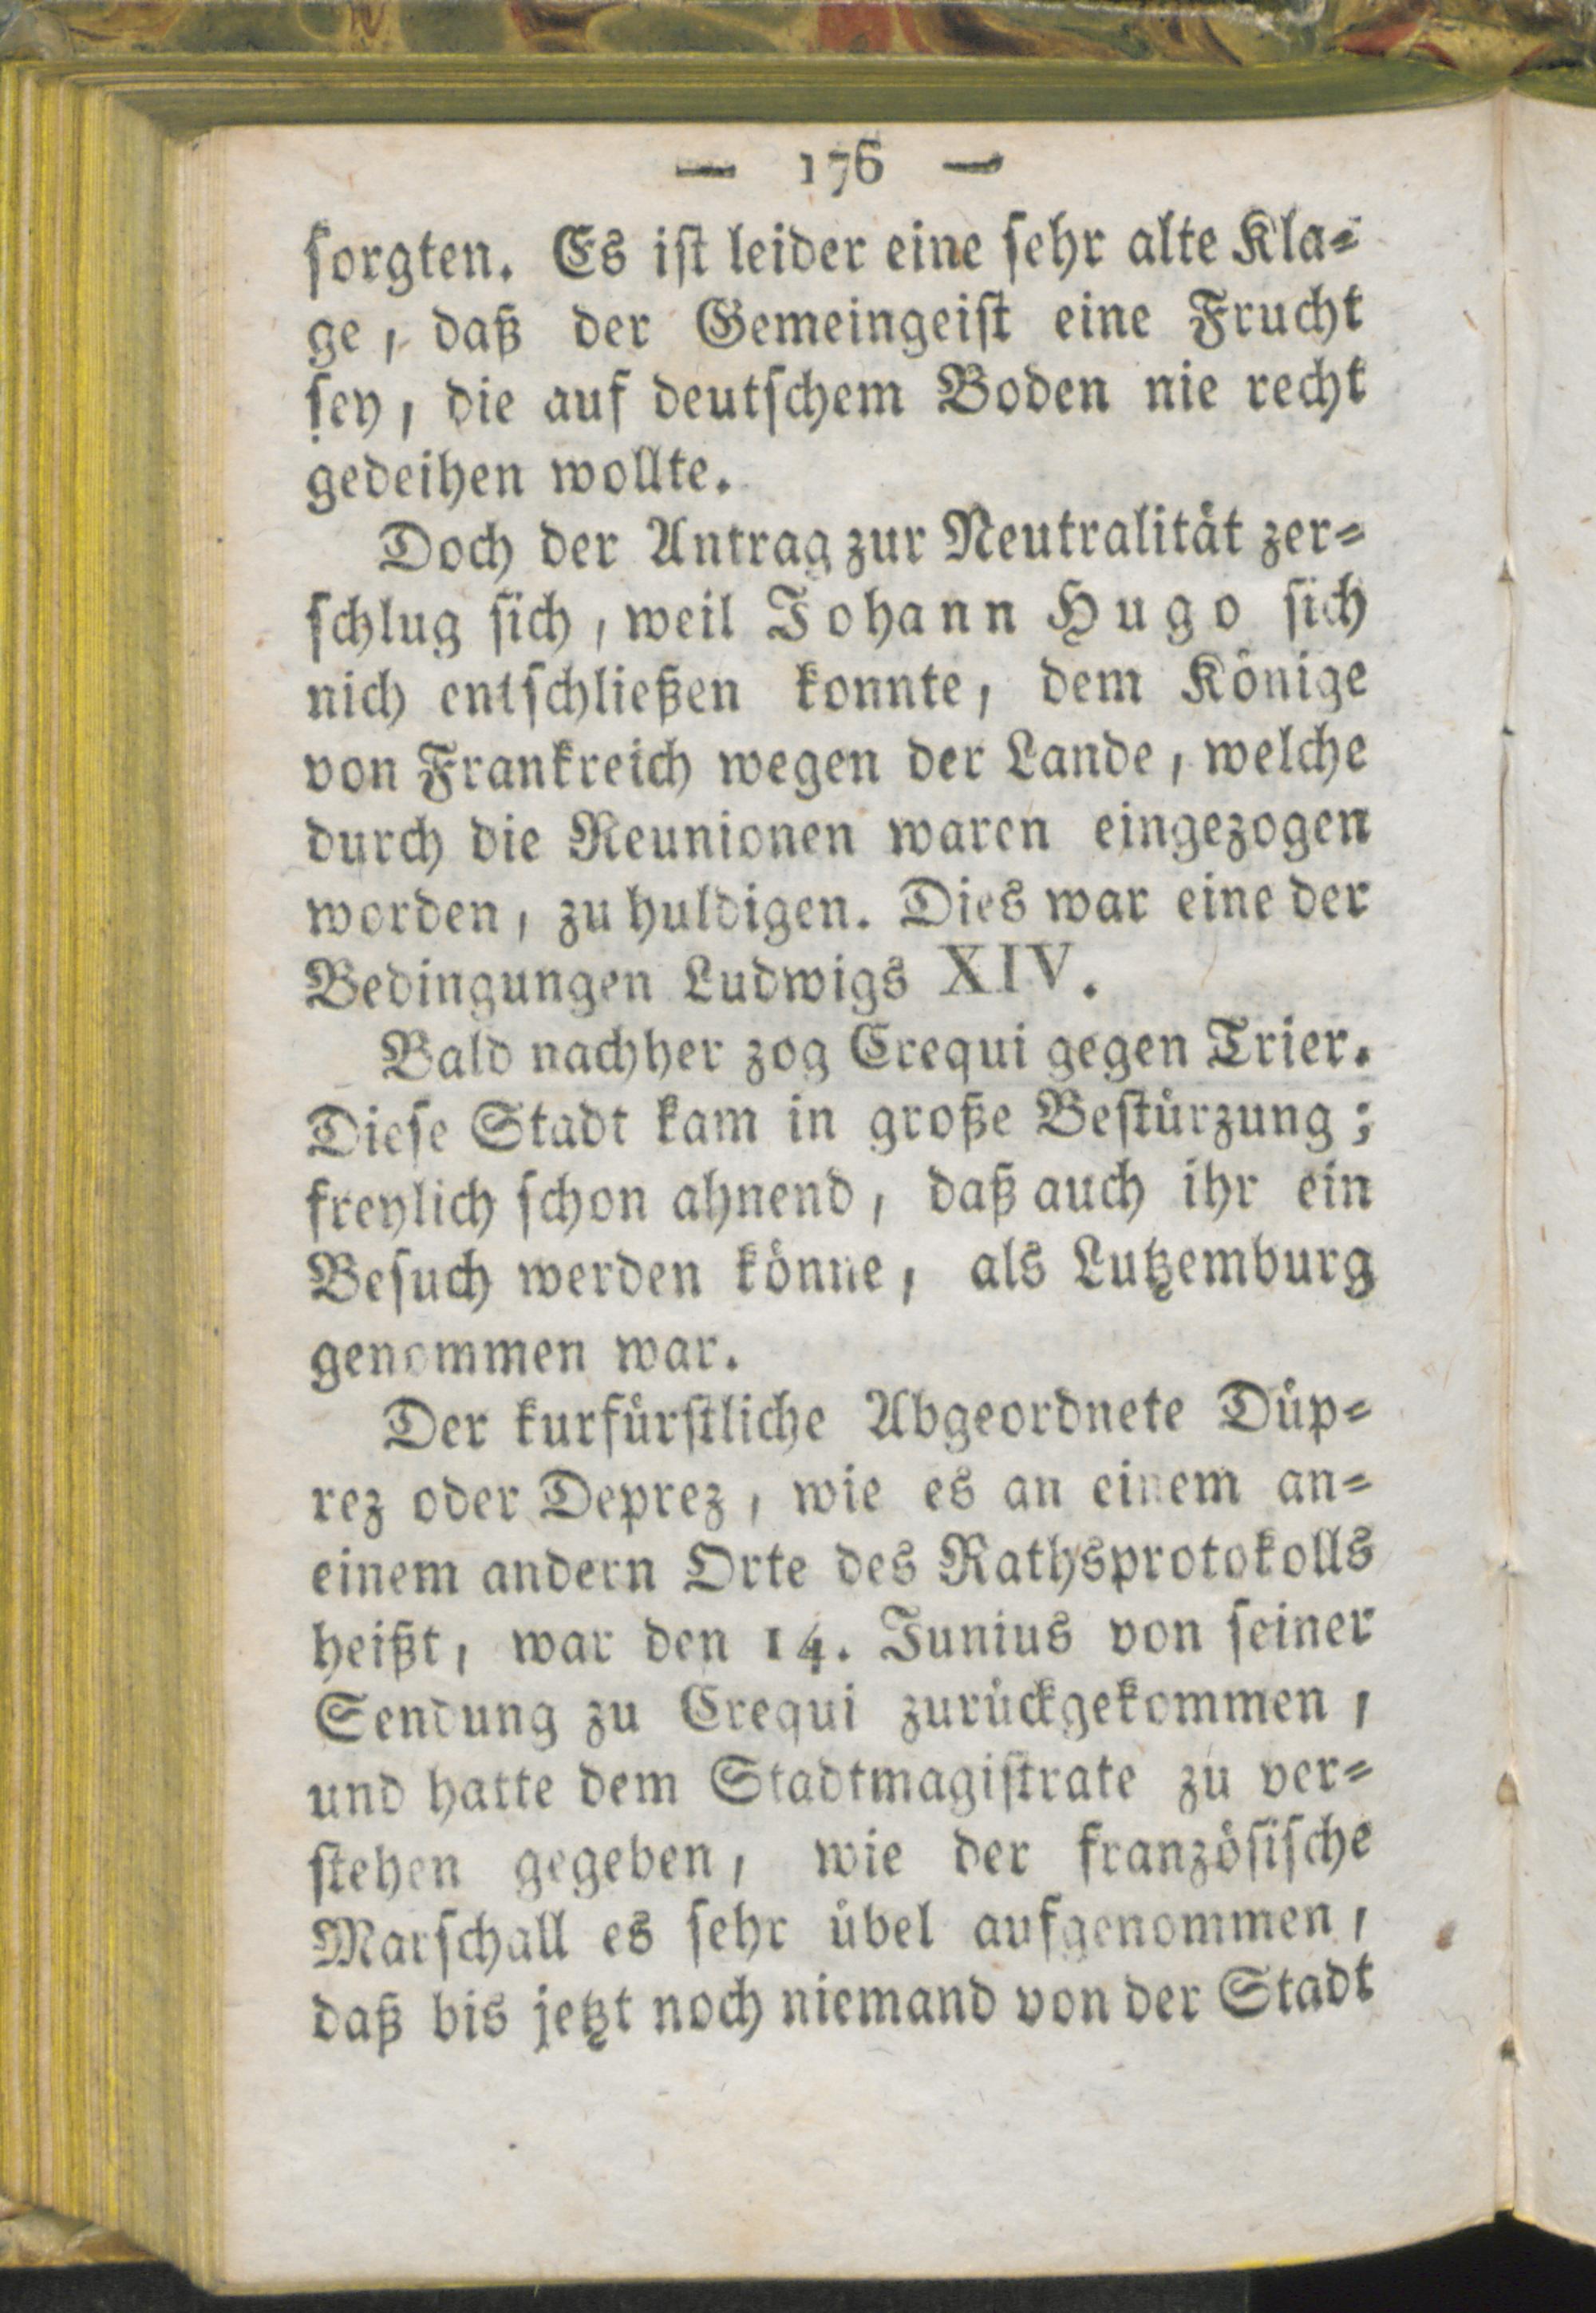 — 176 —
sorgten. Es ist leider eine sehr alte Kla-
ge, daß der Gemeingeist eine Frucht
sey, die auf deutschem Boden nie recht
gedeihen wollte.
Doch der Antrag zur Neutralität zer-
schlug sich, weil Johann Hugo sich
nich entschließen konnte, dem Könige
von Frankreich wegen der Lande, welche
durch die Reunionen waren eingezogen
worden, zu huldigen. Dies war eine der
Bedingungen Ludwigs XIV.
Bald nachher zog Crequi gegen Trier.
Diese Stadt kam in große Bestürzung;
freylich schon ahnend, daß auch ihr ein
Besuch werden könne, als Lutzemburg
genommen war.
Der kurfürstliche Abgeordnete Düp-
rez oder Deprez, wie es an einem an-
einem andern Orte des Rathsprotokolls
heißt, war den 14. Junius von seiner
Sendung zu Crequi zurückgekommen,
und hatte dem Stadtmagistrate zu ver-
stehen gegeben, wie der französische
Marschall es sehr übel aufgenommen,
daß bis jetzt noch niemand von der Stadt